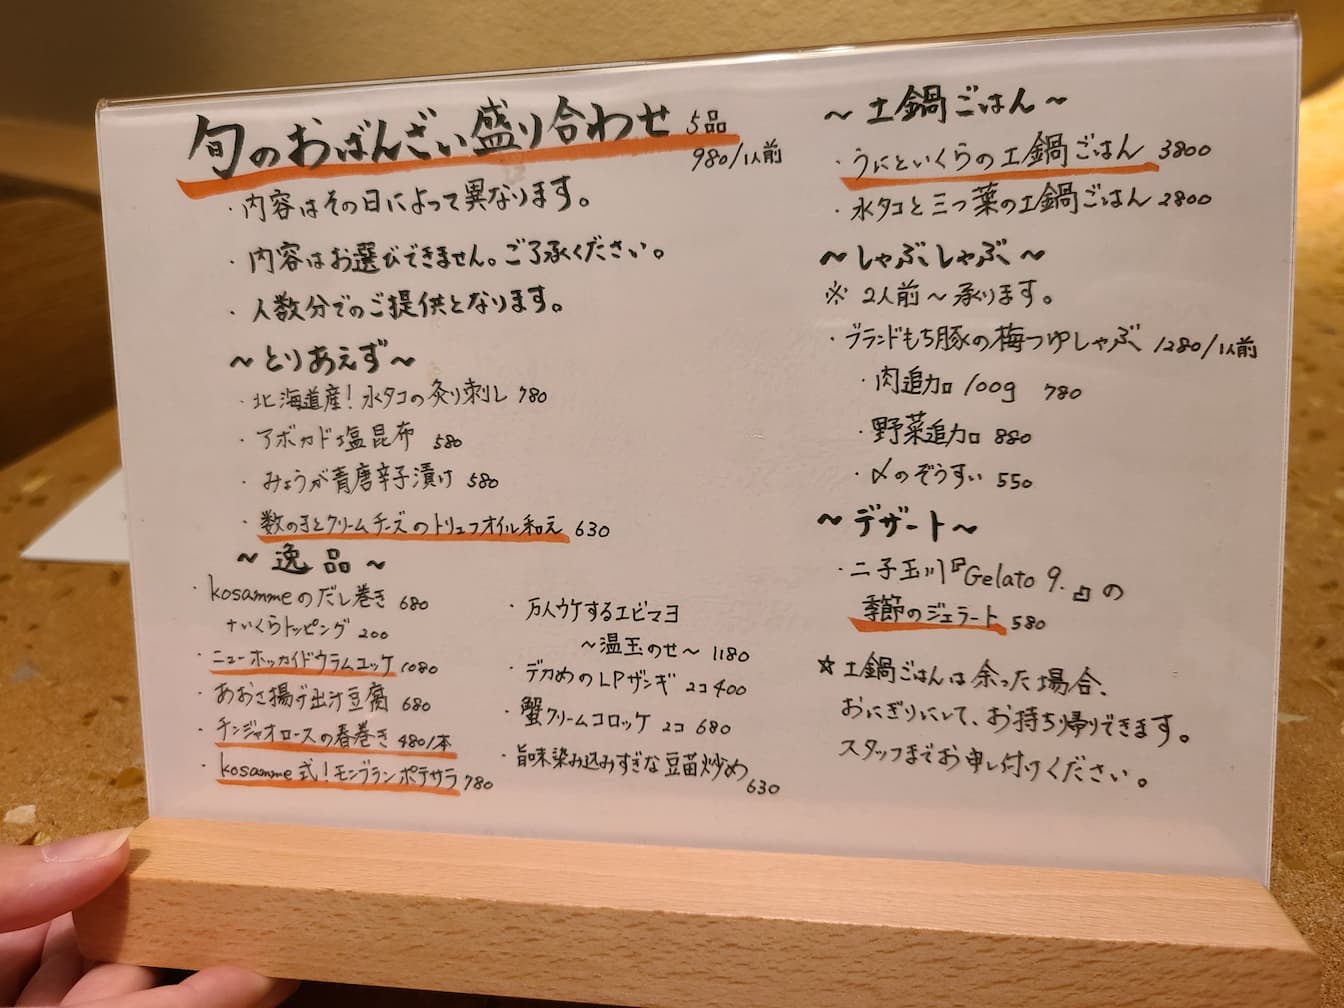 旬のおばんざい盛り合わせ 5品
980/1人前
・内容はその日によって異なります。
・内容はお選びできません。ご了承ください。
・人数分でのご提供となります。
〜とりあえず〜
・北海道産!水タコの炙り刺し 780
・アボカド塩昆布 580
・みょうが青唐辛子漬け 580
・数の子とクリームチーズのトリュフオイル和え 630
〜逸品〜
・kosammeのだし巻き 680
+いくらトッピング 200
・ニューホッカイドウラムユッケ 1080
・あおさ揚げ出汁豆腐 680
・チンジャオロースの春巻き 480/本
・kosamme式!モンブランポテサラ 780
・万人ウケするエビマヨ
〜温玉のせ〜 1180
・デカめのLPザンギ 2コ400
・蟹クリームコロッケ 2コ 680
・旨味染み込みすぎな豆苗炒め
630
〜土鍋ごはん〜
・うにといくらの土鍋ごはん 3800
・水タコと三つ葉の土鍋ごはん 2800
〜しゃぶしゃぶ〜
※ 2人前〜承ります。
・ブランドもち豚の梅つゆしゃぶ 1280/1人前
・肉追加 100g 780
・野菜追加 880
・〆のぞうすい 550
〜デザート〜
・二子玉川『Gelato 9.』の
季節のジェラート 580
☆土鍋ごはんは余った場合、
おにぎりにして、お持ち帰りできます。
スタッフまでお申し付けください。